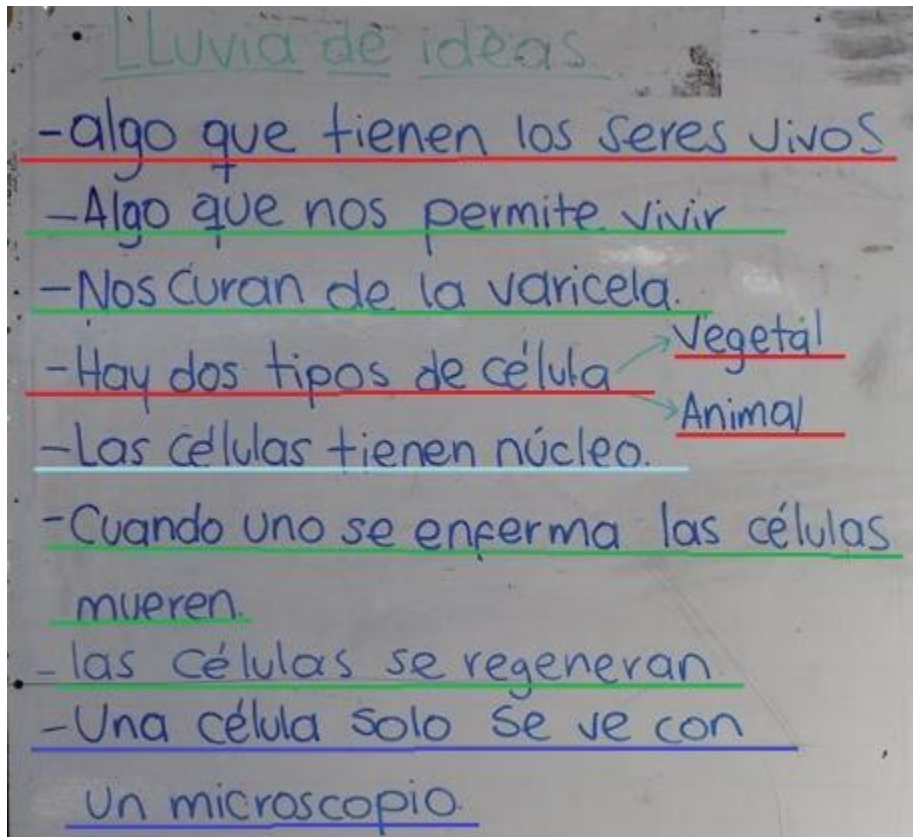 • LLuvia de ideas.
-algo que tienen los seres vivos
-Algo que nos permite vivir
-Nos curan de la varicela.
-Hay dos tipos de célula
Vegetal
Animal
-Las células tienen núcleo.
-Cuando uno se enferma las células
mueren.
-las células se regeneran.
-Una célula solo se ve con
un microscopio.